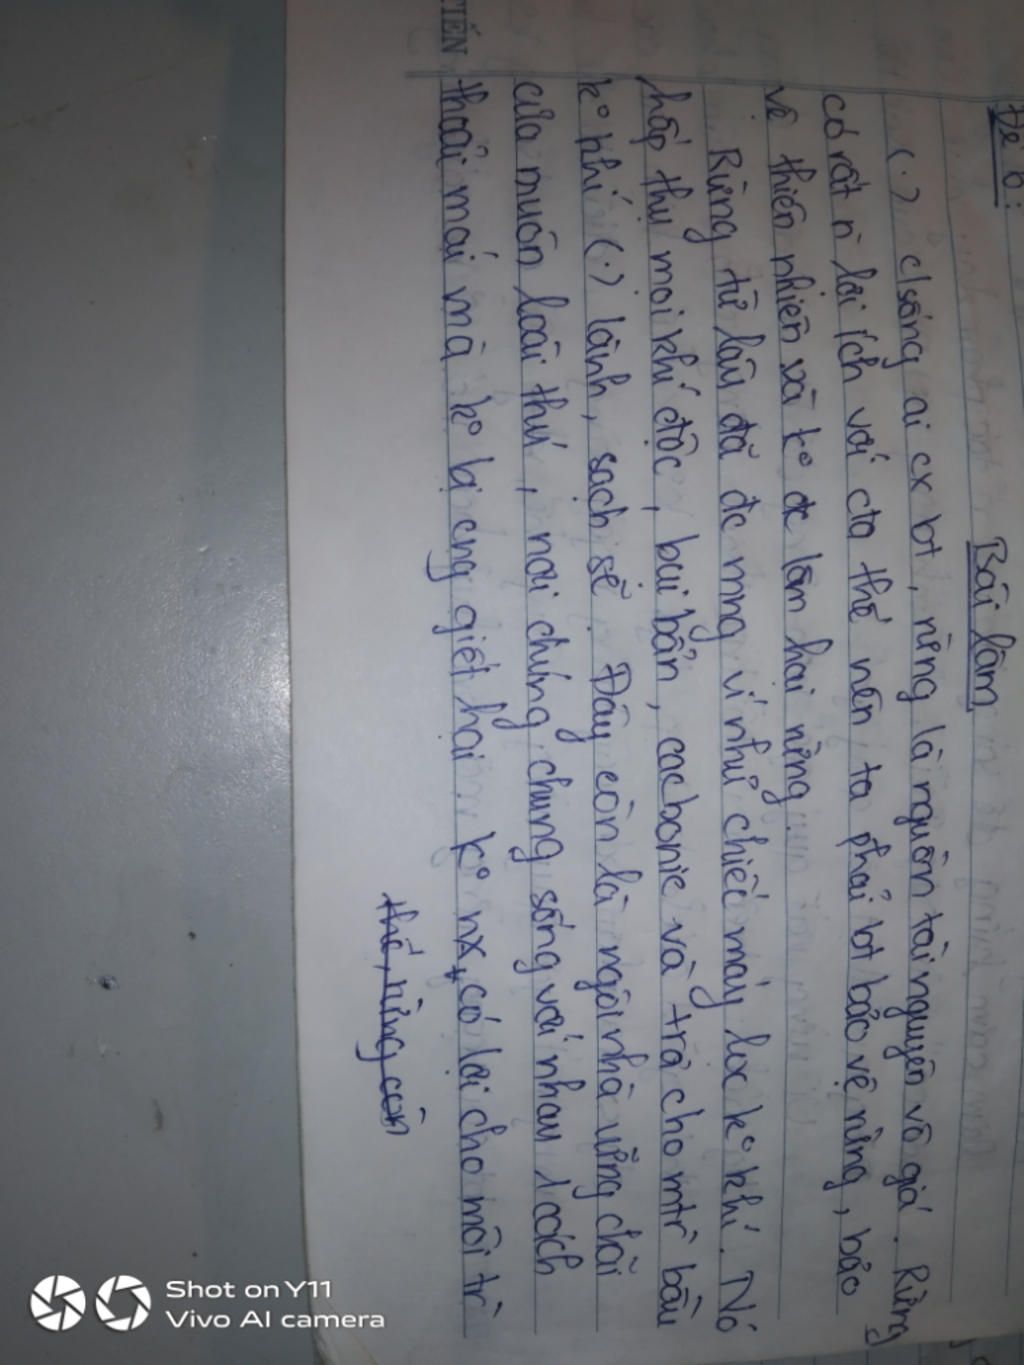 TIẾN
Đề 6:
Bài làm
(.) c/sống ai cx bt, rừng là nguồn tài nguyên vô giá. Rừng
có rất n lợi ích với cta thế nên ta phải bt bảo vệ rừng, bảo
vệ thiên nhiên và ko đc làm hại rừng.
Rừng từ lâu đã đc mng ví như chiếc máy lọc ko khí. Nó
hấp thụ mọi khí độc, bụi bẩn, cacbonic và trả cho mtr bầu
ko khí (.) lành, sạch sẽ. Đây còn là ngôi nhà
của muôn loài thú, nơi chúng chung sống với nhau 1 cách
thoải mái mà ko bị cng giết hại. ko nx, có lợi cho môi tr
thế, rừng còn
Shot on Y11
Vivo AI camera